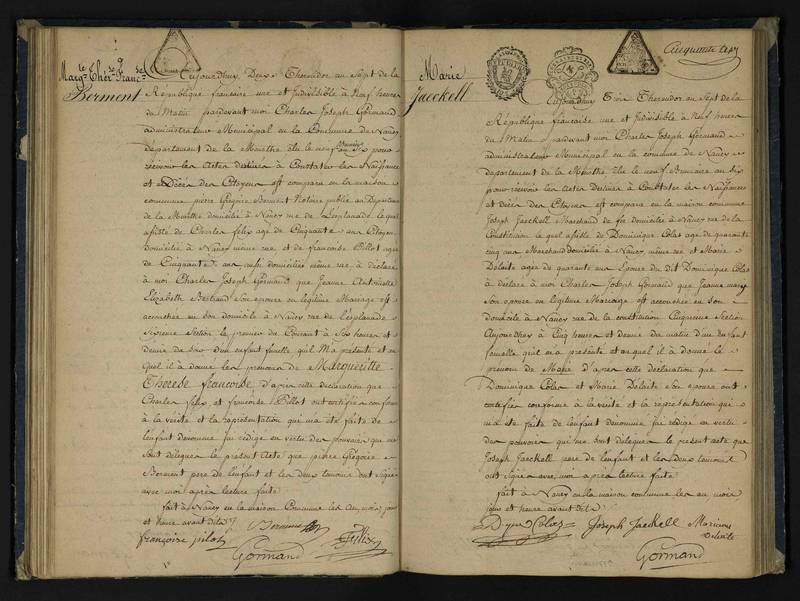 Marg.te Ther.se Franc.se
Berment
Aujourdhuy Deux Thermidor an Sept de la
République francaise une et Indivisible à Neuf heures
du Matin pardevant moi Charles Joseph Gormand
administrateur Municipal en la Commune de Nancy
département de la Meurthe élu le neuf Brumaire an Six pour
recevoir les Actes destinés à Constater les Naissances
et Décès des Citoyens est comparu en la maison
commune pierre Grégoire Berment Notaire public au Departement
de la Meurthe domicilié à Nancy rue de l'esplanade lequel
assisté de Charles félix agé de Cinquante ans Citoyen
Domicilié à Nancy même rue et de francoise Pillot agée
de Cinquante ans aussi domiciliée même rue à déclaré
à moi Charles Joseph Gormand que Jeanne Antoinette
Elizabeth Bertrand son épouse en légitime Mariage est
accouchée en son domicile à Nancy rue de l'esplanade
Sixieme Section le premier du Courant à Six heures et
demie du soir d'un enfant femelle quil M'a présenté et au
quel il à donné les prénoms de Margueritte
Thérese francoise d'après cette déclaration que
Charles félix et francoise Pillot ont certifiée conforme
à la vérité et la représentation qui m'a été faite de
l'enfant denommé jai rédigé en vertu des pouvoirs qui me
sont délégués le présent Acte que pierre Grégoire
Berment pere de l'enfant et les deux temoins ont signé
avec moi après lecture faite
fait à Nancy en la maison Commune les an, mois, jour
et heure avant dits
Berment
françoise pilot
Félix
Gormand
Cinquante Sept
Marie
Jaeckell
Aujourdhuy Trois Thermidor an Sept de la
République francaise une et Indivisible à Neuf heures
du Matin pardevant moi Charles Joseph Gormand
administrateur Municipal en la commune de Nancy
departement de la Meurthe élu le neuf Brumaire an Six
pour recevoir les Actes destinés à Constater les Naissances
et décès des Citoyens est comparu en la maison commune
Joseph Jaeckell Marchand de domicilié à Nancy rue de la
Constitution le quel assisté de Dominique Colas agé de quarante
cinq ans Marchand domicilié à Nancy même rue et Marie
Delaite agée de quarante ans Epouse du dit Dominique Colas
à déclaré à moi Charles Joseph Gormand que Jeanne
Son épouse en légitime Mariage est accouchée en son
domicile à Nancy rue de la constitution Cinquieme Section
Aujourdhuy à Cinq heures et demie du matin d'un enfant
femelle quil m'a présenté et auquel il à donné le
prénom de Marie d'après cette déclaration que
Dominique Colas et Marie Delaite Son épouse ont
certifiée conforme à la vérité et la représentation qui
m'a été faite de l'enfant denommé jai rédigé en vertu
des pouvoirs qui me sont délégués le présent acte que
Joseph Jaeckell pere de l'enfant et les deux temoins
ont signé avec moi après lecture faite
fait à Nancy en la maison commune les an mois
jour et heure avant dits
Colas Joseph Jaeckell
Gormand